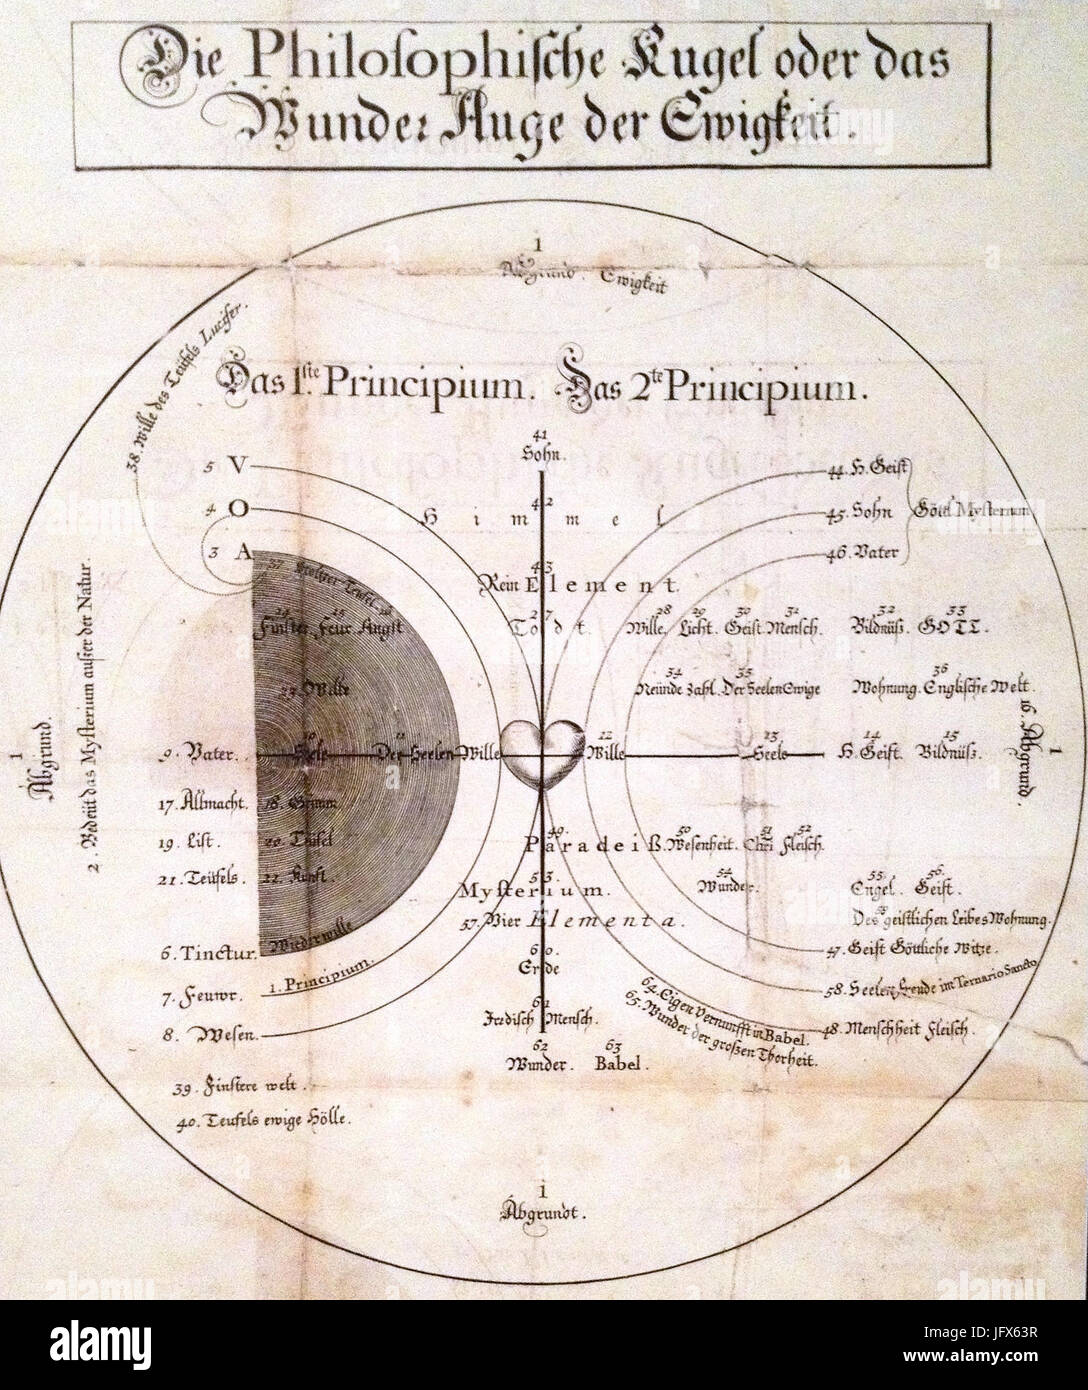 Die Philosophische Kugel oder das
Wunder Auge der Ewigkeit.
1
Abgrund. Ewigkeit
38. Wille des Teüfels Lucifer.
Das 1.ste Principium. Das 2te Principium.
41
Sohn.
5 V
44. H. Geist
4 O
42
Himmel
45. Sohn
Göttl Mysterium
3 A
46. Vater
43
Rein Element.
37 Stoltzer Teüfel
24 25 26
Finster Feur Angst
27
Todt.
28 29 30 31 32 33
Wille. Licht. Geist. Mensch. Bildnüß. GOTT.
34 35 36
Neünde Zahl. Der Seelen Ewige Wohnung. Englische Welt.
23 Wille
1
Abgrund.
2. Bedeüt das Mysterium außer der Natur.
9. Vater.
10 11
Seele Der Seelen Wille
12 13 14 15
Wille Seele H. Geist. Bildnüß.
16. Abgrund.
1
17. Allmacht. 18. Grimm
19. List. 20. Teüfel
21. Teüfels. 22. Kunst.
49. 50 51 52
Paradeiß. Wesenheit. Chri Fleisch.
53.
Mysterium.
54
Wunder.
55. 56.
Engel. Geist.
57. Vier Elementa.
59
Des geistlichen Leibes Wohnung.
6. Tinctur. Wiederwille
47. Geist Göttliche Witze.
60
Erde
7. Feuwr. 1. Principium.
58. Seelen Freude im Ternario Sancto
61
Irdisch Mensch.
64. Eigen Vernunfft in Babel.
65. Wunder der großen Thorheit.
8. Wesen.
48. Menschheit Fleisch.
62 63
Wunder. Babel.
39. Finstere welt.
40. Teufels ewige Hölle.
1
Abgrundt.
alamy
JFX63R
www.alamy.com